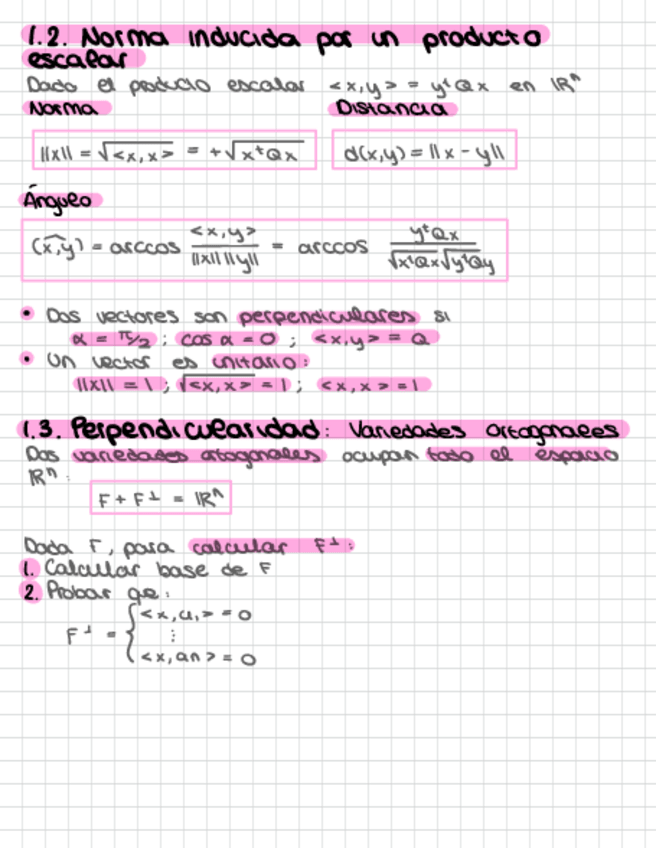 1.2. Norma inducida por un producto
escalar
Dado el producto escalar <x,y> = yᵗQx en ℝⁿ
Norma Distancia
||x|| = √<x,x> = +√xᵗQx d(x,y) = ||x - y||
Ángulo
(x,y) = arccos <x,y> / ||x|| ||y|| = arccos yᵗQx / √xᵗQx √yᵗQy
• Dos vectores son perpendiculares si
α = π/2 ; cos α = 0 ; <x,y> = 0
• Un vector es unitario:
||x|| = 1 ; √<x,x> = 1 ; <x,x> = 1
1.3. Perpendicularidad: Variedades Ortogonales
Dos variedades ortogonales ocupan todo el espacio
ℝⁿ:
F + F⊥ = ℝⁿ
Dada F, para calcular F⊥:
1. Calcular base de F
2. Probar que:
F⊥ = { <x,u₁> = 0
⋮
<x,an> = 0